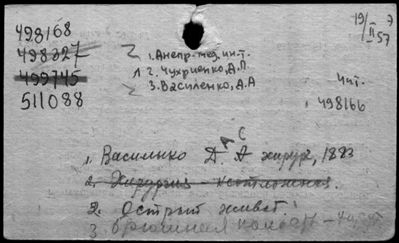 498168
498327
499745
511088
1. Днепр. мед. ин-т.
2. Чухриенко, Д.П.
3. Василенко, А.А
19/II 57
7
Инт.
498166
1. Василенко Д А хирург, 1883
2. Хирургия -
2. Острый живот
3 Брюшная